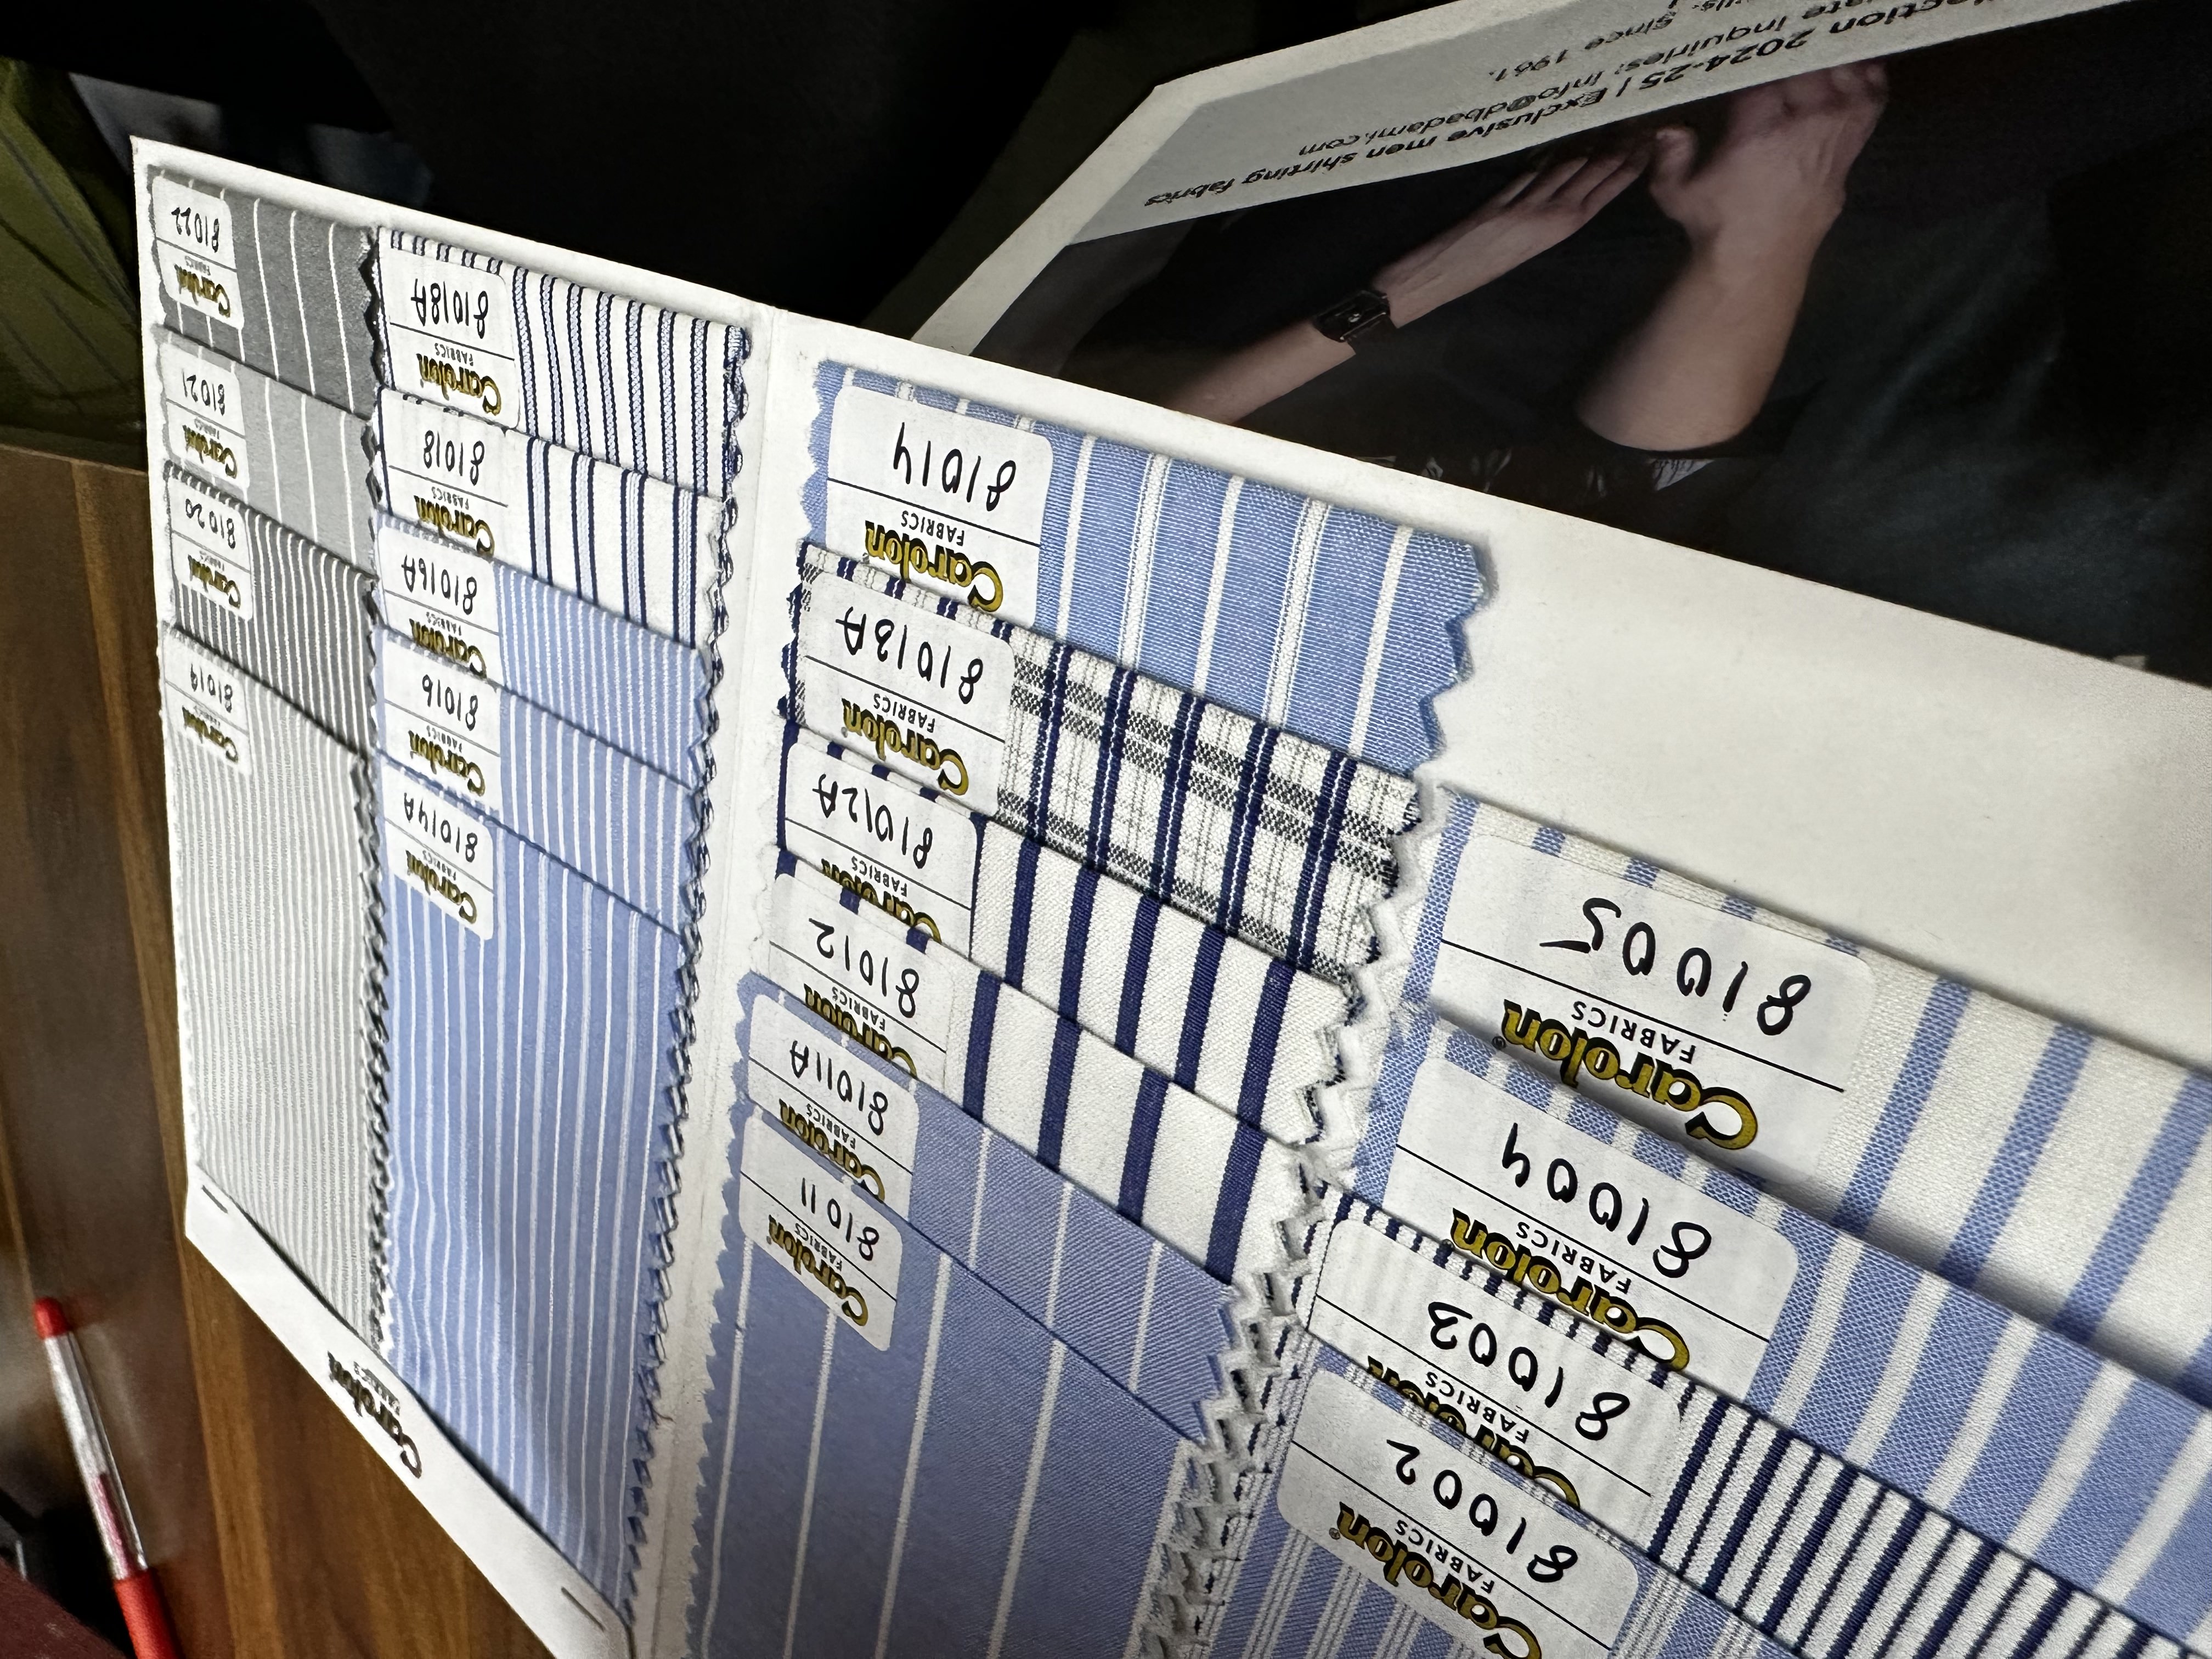 Carolon
FABRICS
Carolon
FABRICS
81019
Carolon
FABRICS
81020
Carolon
FABRICS
81021
Carolon
FABRICS
81022
Carolon
FABRICS
81014A
Carolon
FABRICS
81016
Carolon
FABRICS
81016A
Carolon
FABRICS
81018
Carolon
FABRICS
81018A
Carolon
FABRICS
81011
Carolon
FABRICS
81011A
Carolon
FABRICS
81012
Carolon
FABRICS
81012A
Carolon
FABRICS
81013A
Carolon
FABRICS
81014
Carolon®
FABRICS
81002
Carolon
FABRICS
81003
Carolon
FABRICS
81004
Carolon®
FABRICS
81005
2024-25 | Exclusive men shirting fabrics
inquiries: info@dbadami.com
since 1961.